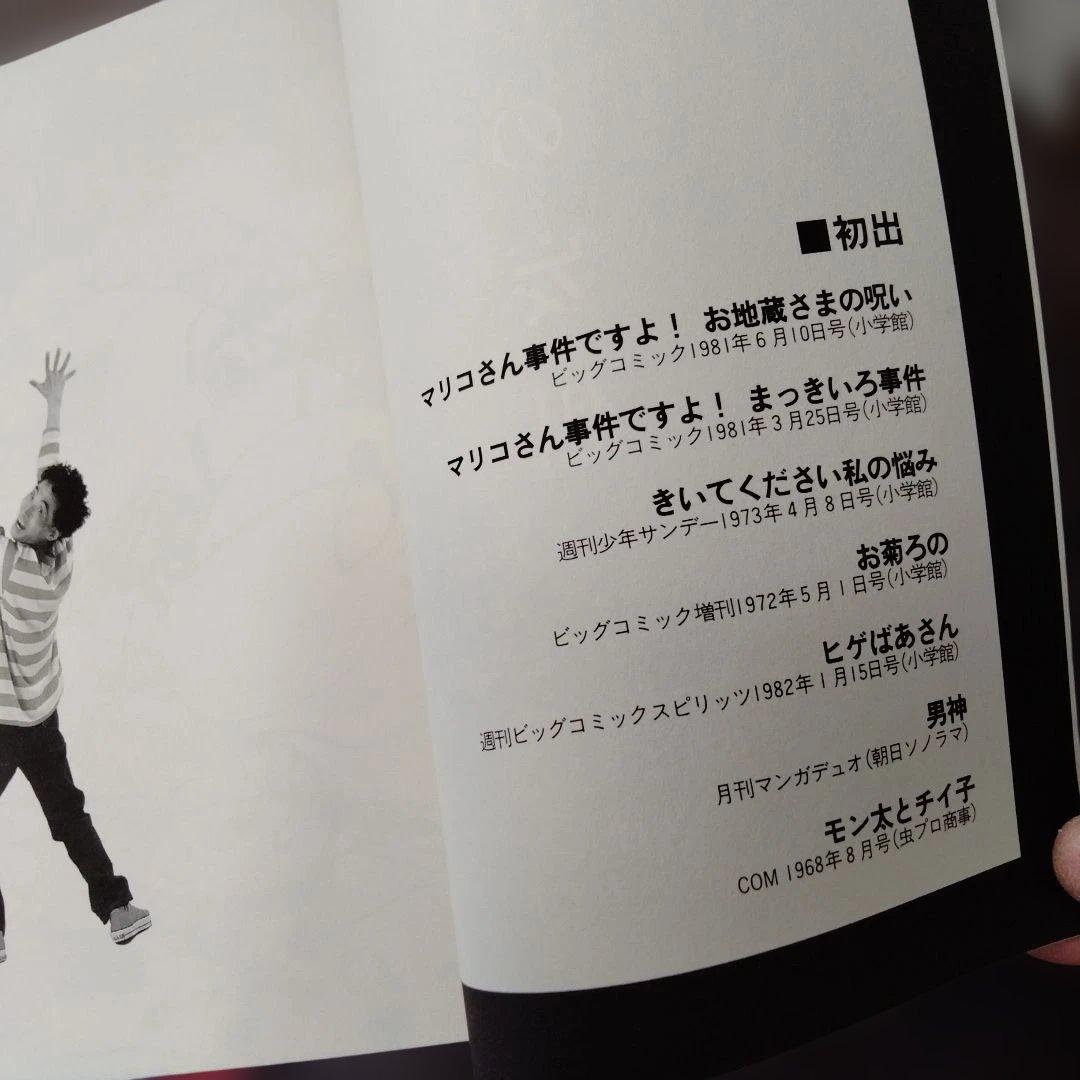 ■初出
マリコさん事件ですよ！ お地蔵さまの呪い
ビッグコミック1981年6月10日号(小学館)
マリコさん事件ですよ！ まっきいろ事件
ビッグコミック1981年3月25日号(小学館)
きいてください私の悩み
週刊少年サンデー1973年4月8日号(小学館)
お菊ろの
ビッグコミック増刊1972年5月1日号(小学館)
ヒゲばあさん
週刊ビッグコミックスピリッツ1982年1月15日号(小学館)
男神
月刊マンガデュオ(朝日ソノラマ)
モン太とチイ子
COM 1968年8月号(虫プロ商事)